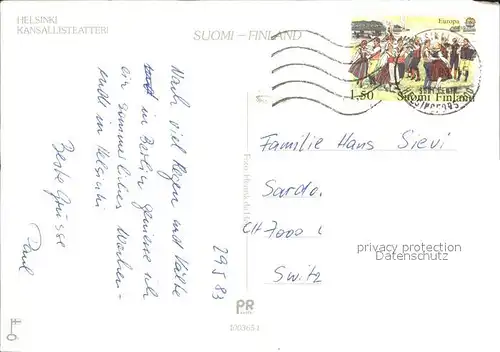 HELSINKI
KANSALLISTEATTERI
SUOMI – FINLAND
Europa
1,50 Suomi Finland
Nach viel Regen und Kälte
in Berlin geniesse ich
ein sommerliches Wochen-
ende in Helsinki
Beste Grüsse
Paul
29.5.83
Familie Hans Sievi
Sardo.
CH 7000
Switz
privacy protection
Datenschutz
Foto:
PR
100365-1